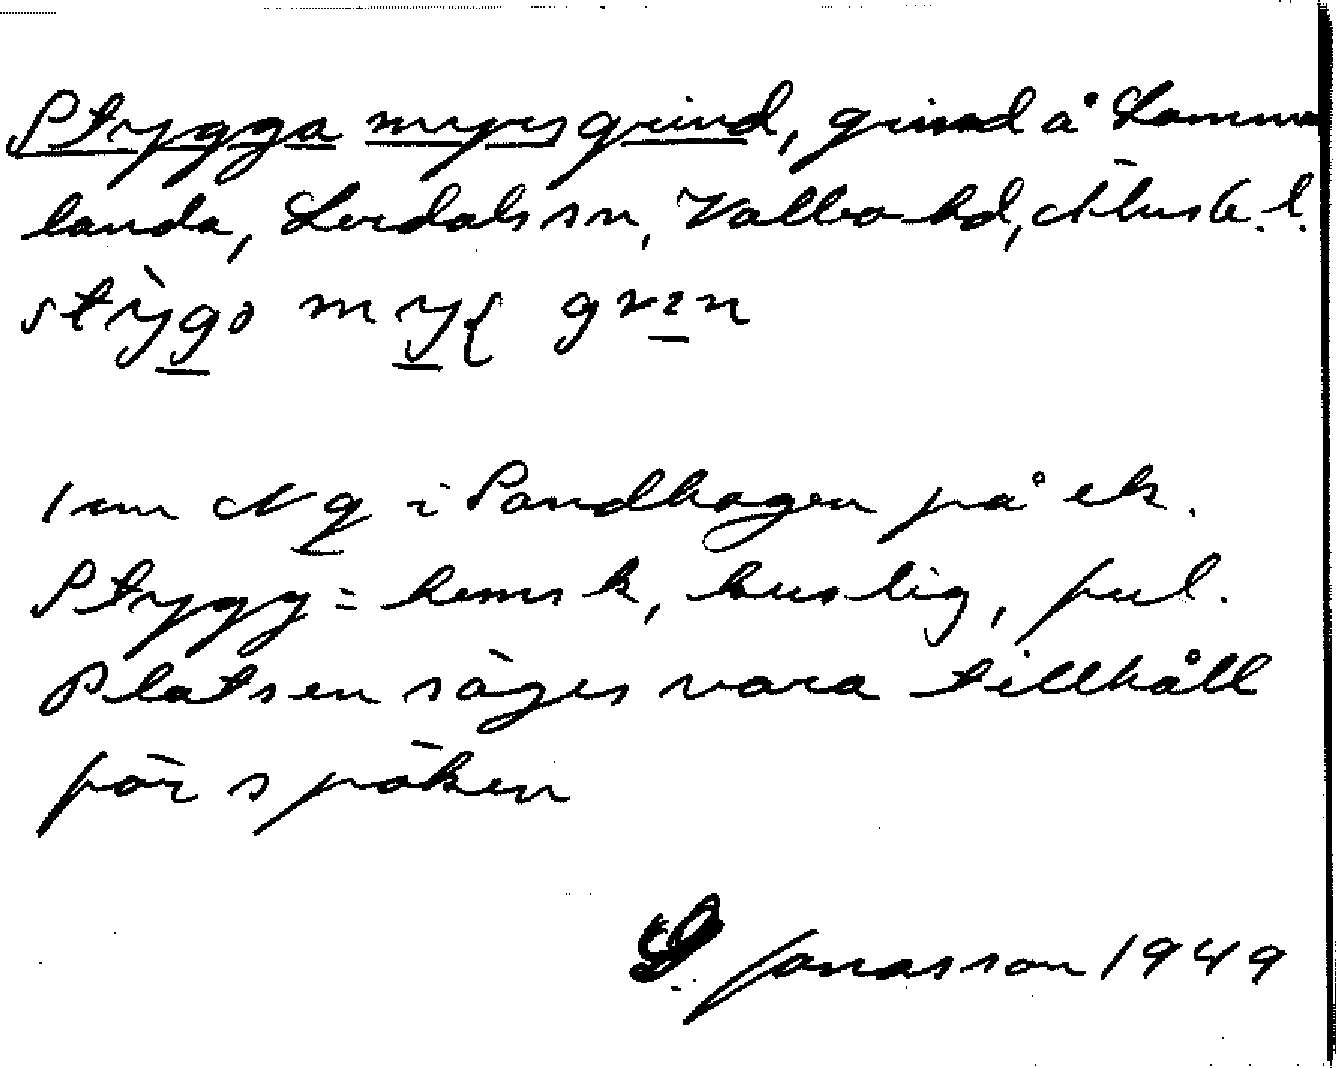 Stygga myresgrind, grind å Lomme
landa, Lerdals sn, Valbo hd, Älvsb. l.
stỳgo myr gren
1 km N g i Sandhagen på ek.
Stygg = hemsk, kuslig, ful.
Platsen säges vara tillhåll
för spöken
Jonasson 1949